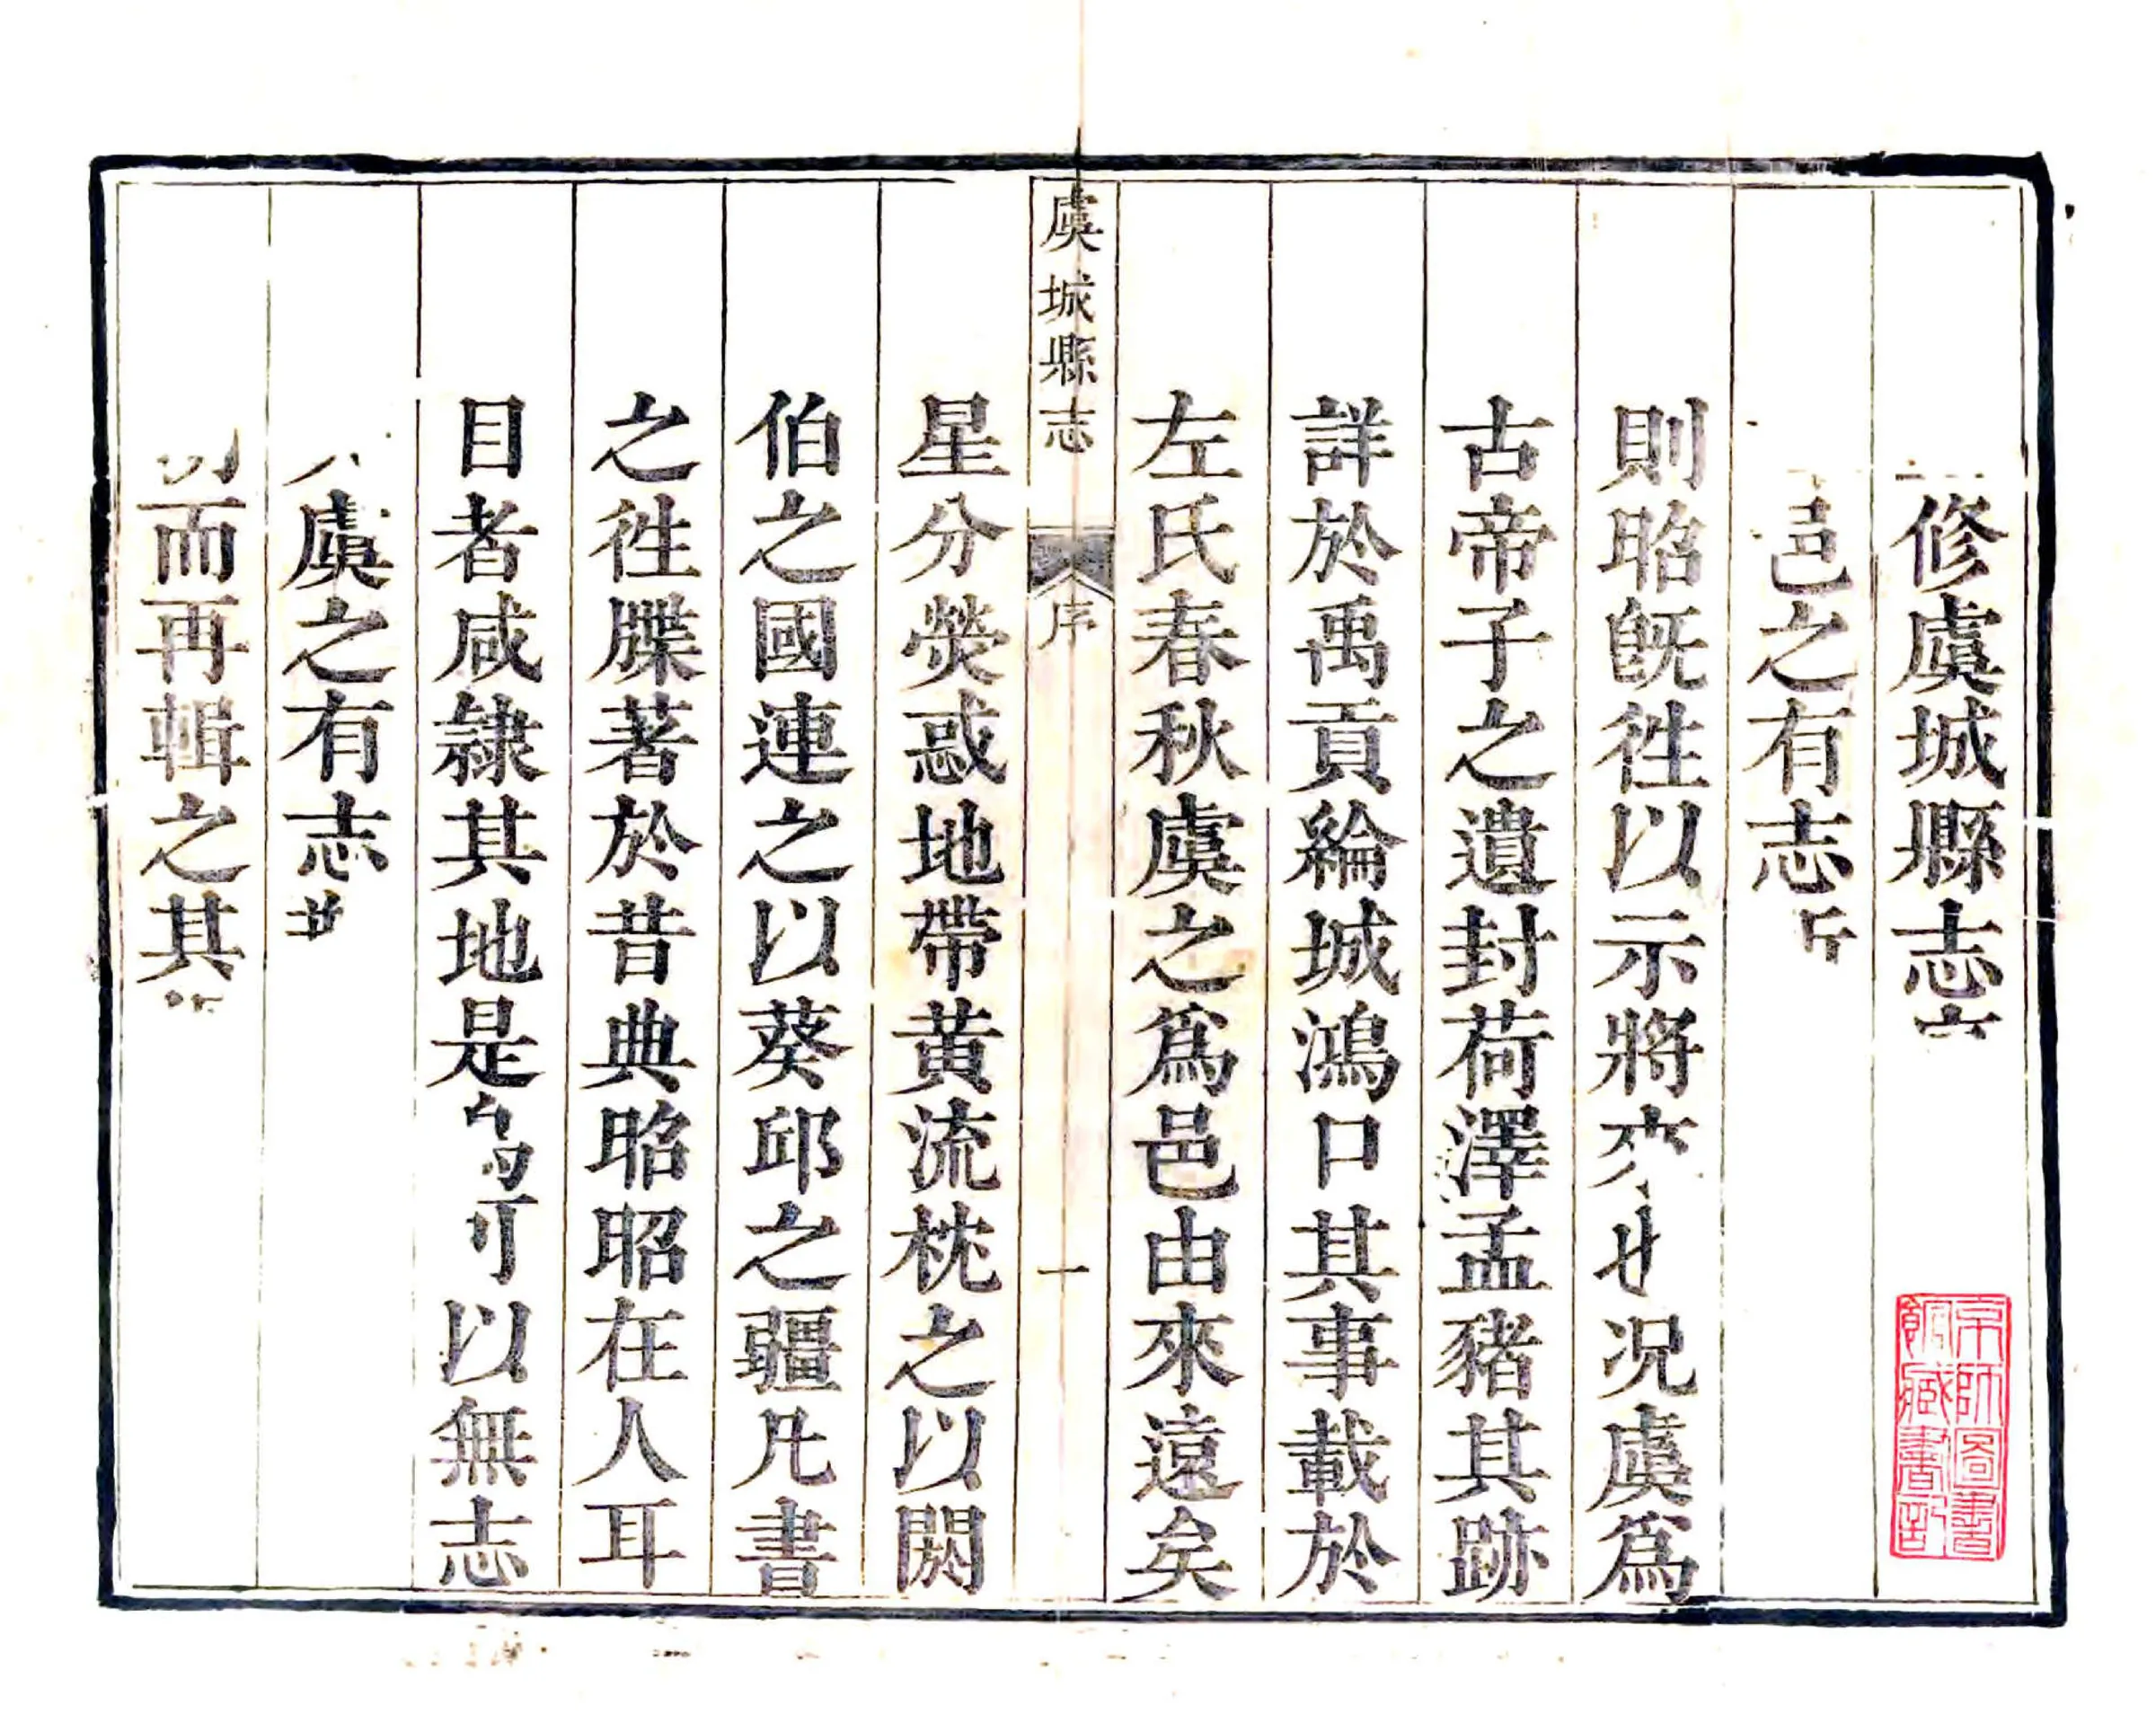 修虞城縣志
邑之有志
則昭旣徃以示將來 况虞爲
古帝子之遺封荷澤孟豬其跡
詳於禹貢綸城鴻口其事載於
左氏春秋虞之爲邑由來遠矣
虞城縣志 序 一
星分熒惑地帶黄流枕之以閼
伯之國連之以葵邱之疆凡書
之徃牒著於昔典昭昭在人耳
目者咸隷其地是 可以無志
虞之有志
而再輯之其
京師圖書館藏書記